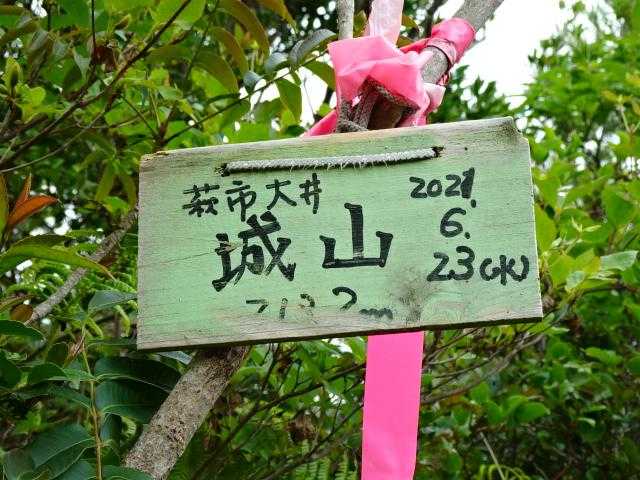 萩市大井
2021.
6.
23(水)
城山